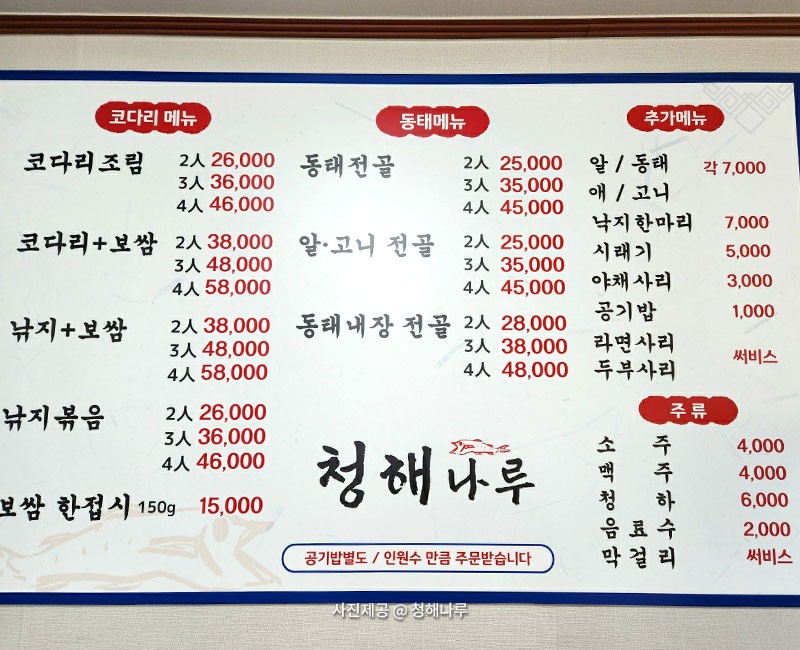 코다리 메뉴
코다리조림 2人 26,000
3人 36,000
4人 46,000
코다리+보쌈 2人 38,000
3人 48,000
4人 58,000
낚지+보쌈 2人 38,000
3人 48,000
4人 58,000
낚지볶음 2人 26,000
3人 36,000
4人 46,000
보쌈 한접시 150g 15,000
동태메뉴
동태전골 2人 25,000
3人 35,000
4人 45,000
알·고니 전골 2人 25,000
3人 35,000
4人 45,000
동태내장 전골 2人 28,000
3人 38,000
4人 48,000
청해나루
공기밥별도 / 인원수 만큼 주문받습니다
추가메뉴
알 / 동태 각 7,000
애 / 고니
낙지한마리 7,000
시래기 5,000
야채사리 3,000
공기밥 1,000
라면사리
써비스
두부사리
주 류
소 주 4,000
맥 주 4,000
청 하 6,000
음 료 수 2,000
막 걸 리 써비스
사진제공 @ 청해나루